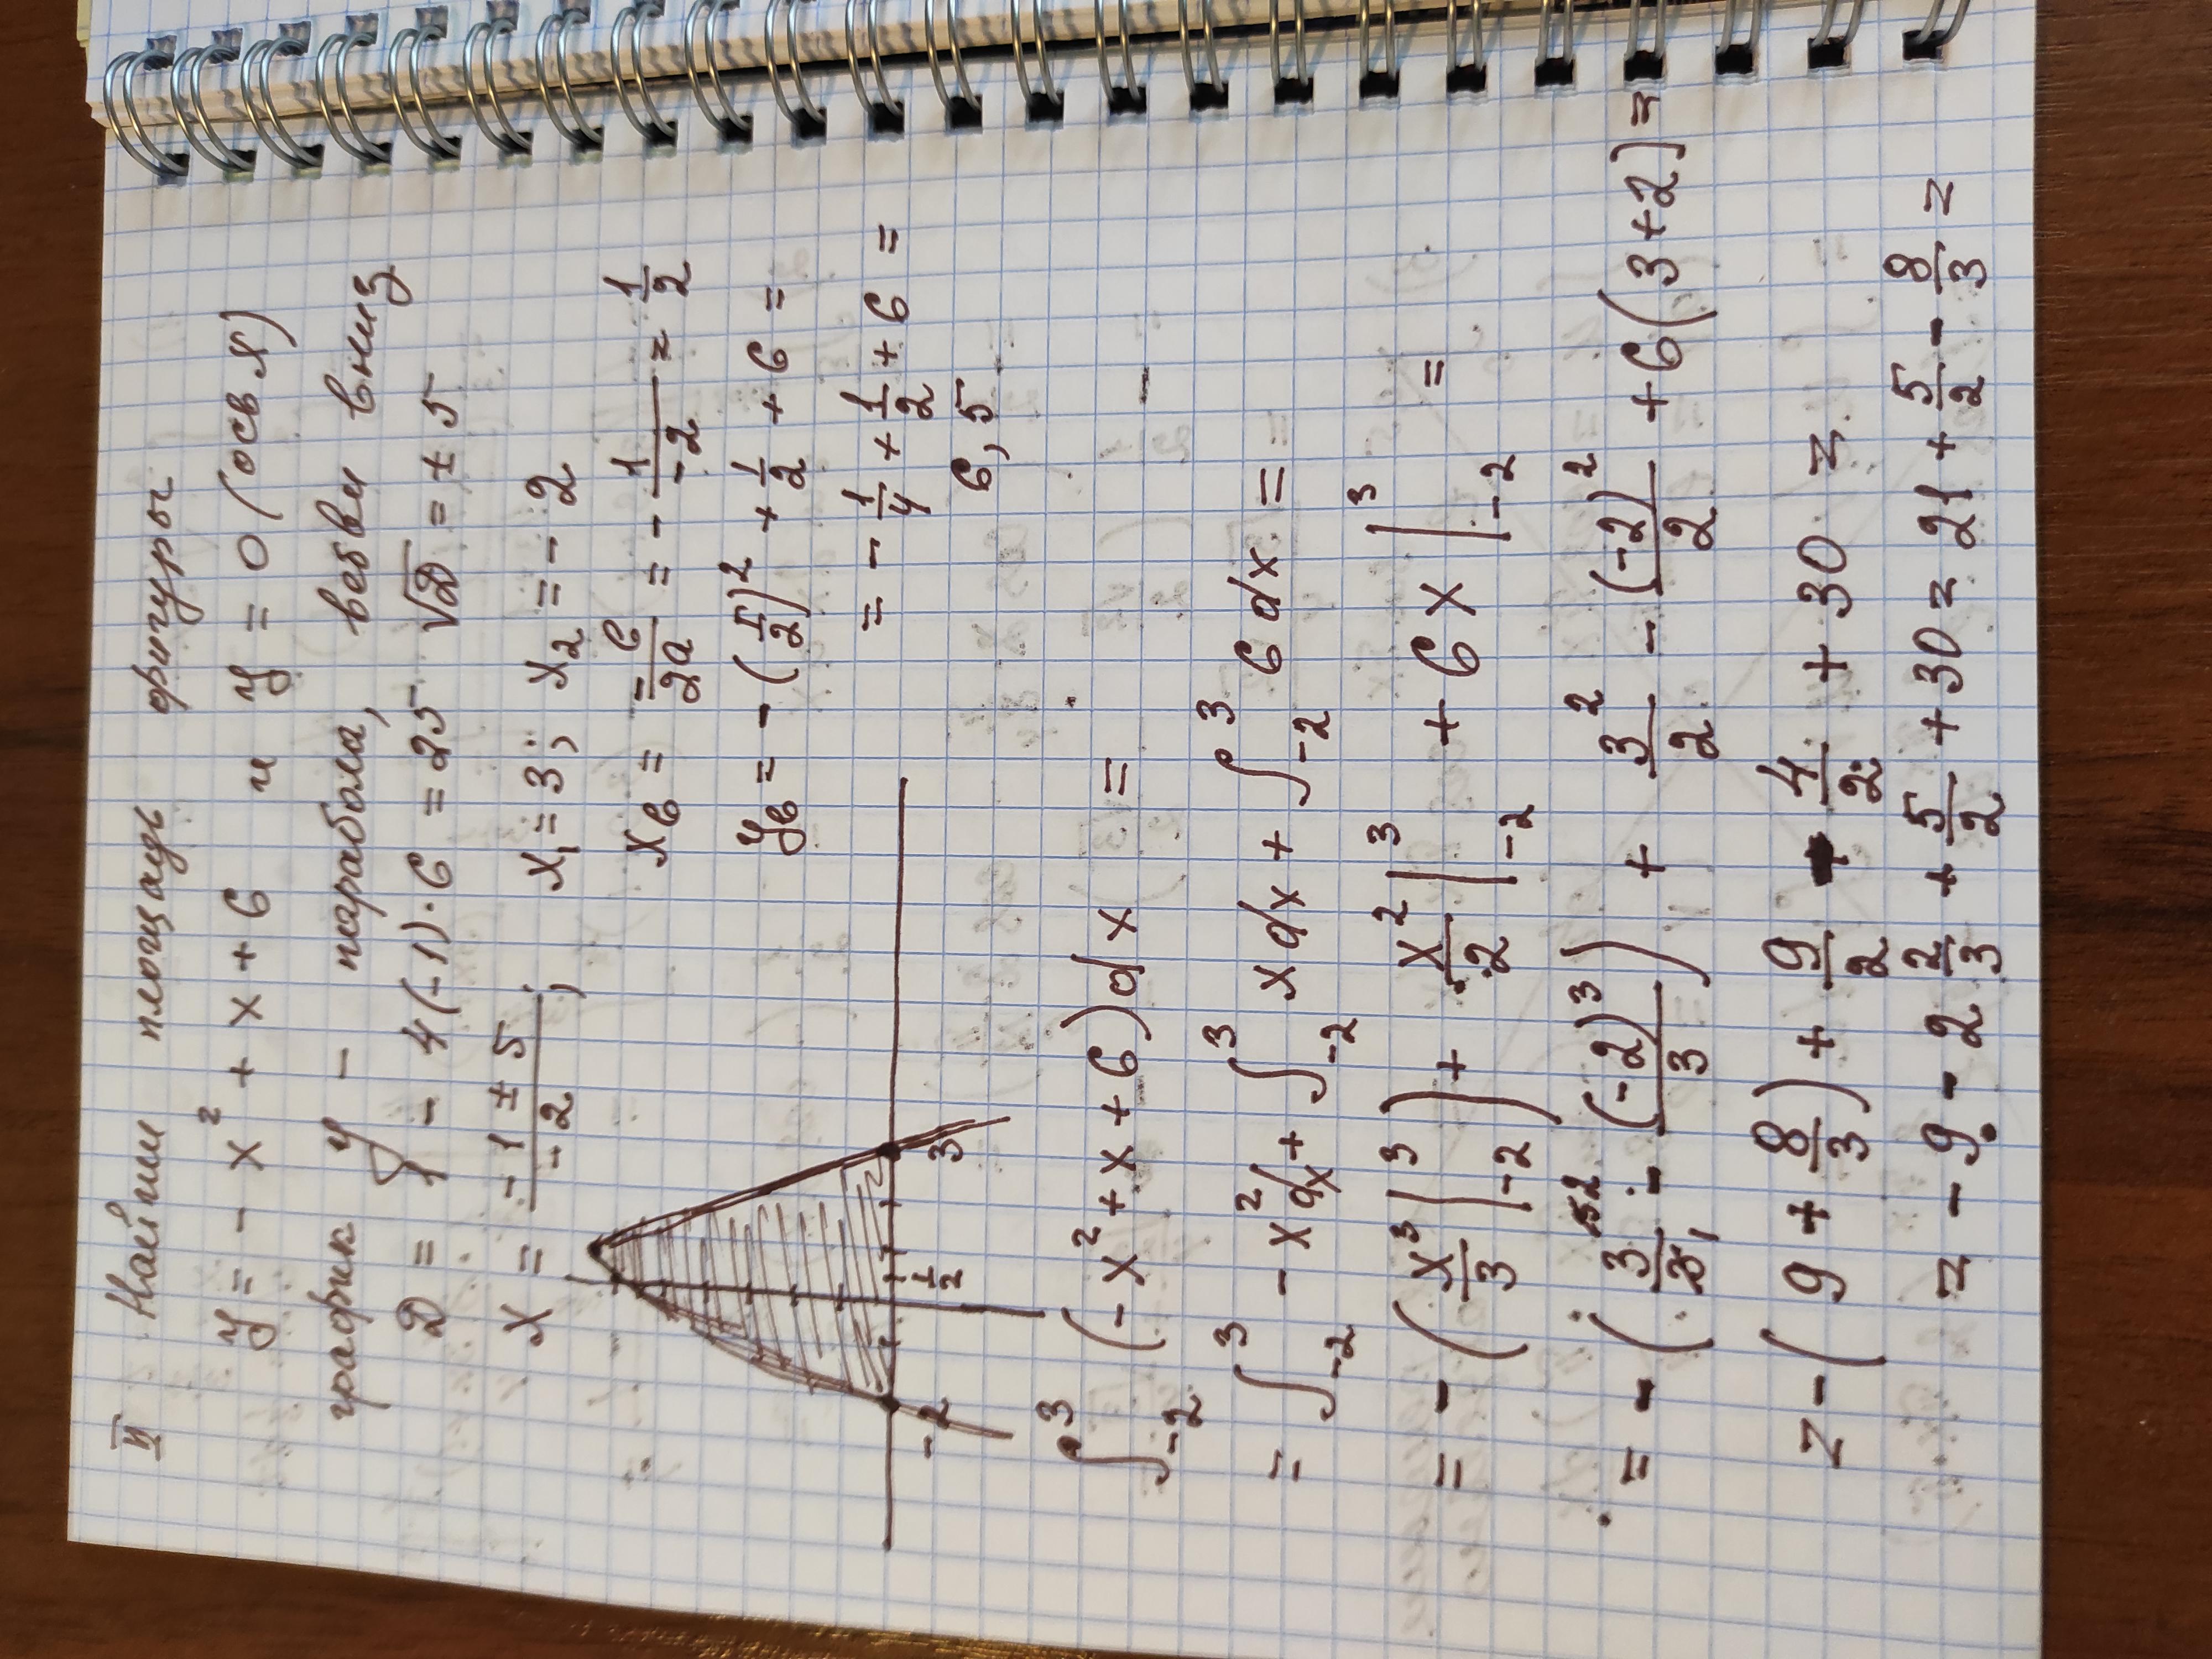 II Найти площадь фигуры
y = - x² + x + 6 и y = 0 (ось X)
график y - парабола, ветви вниз
D = 1 - 4(-1)·6 = 25 √D = ± 5
x = (-1 ± 5)/(-2); x₁ = 3; x₂ = - 2
xв = -в/2a = - 1/-2 = 1/2
yв = - (1/2)² + 1/2 + 6 =
= - 1/4 + 1/2 + 6 =
6,5
-2 1/2 3
∫₋₂³ (- x² + x + 6) dx =
= ∫₋₂³ - x² dx + ∫₋₂³ x dx + ∫₋₂³ 6 dx =
= - (x³/3 |₋₂³) + x²/2 |₋₂³ + 6x |₋₂³ =
= - (3³/3 - (-2)³/3) + 3²/2 - (-2)²/2 + 6(3+2) =
= - (9 + 8/3) + 9/2 + 4/2 + 30 =
= - 9 - 2 2/3 + 5/2 + 30 = 21 + 5/2 - 8/3 =